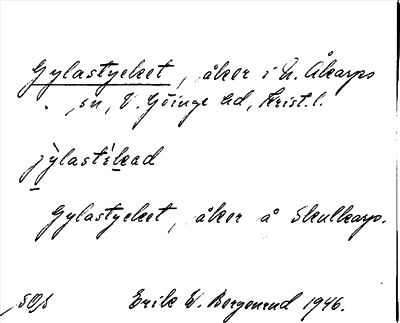 Gylastycket, åker i N. Åkarps
sn, V. Göinge hd, Krist. l.
Gylastycket, åker å Skulkarps.
Erik W. Bergenrud 1946.